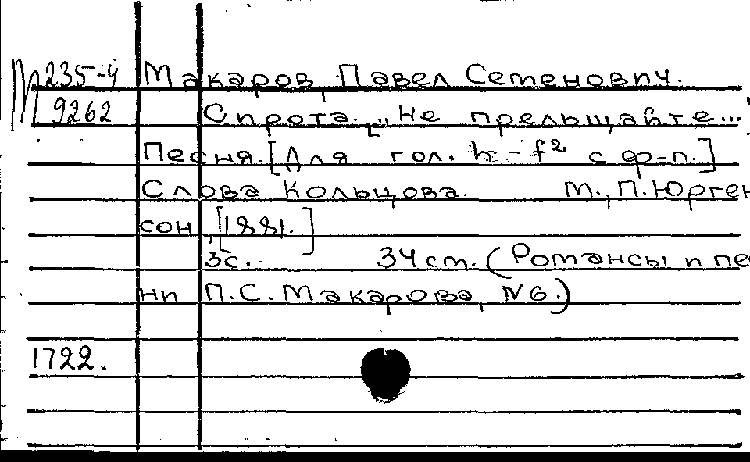 М 235-4 Макаров, Павел Семенович.
9262 Сирота. „Не прельщайте..."
Песня. [Для гол. h - f² с ф-п.]
Слова Кольцова. М., П. Юрген
сон, [1881.]
3с. 34 см. (Романсы и пе
ни П.С. Макарова, №6.)
1722.